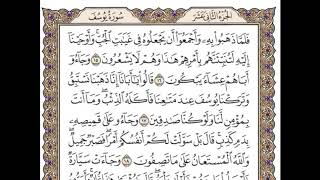 الجزء الثاني عشر سورة يوسف
فَلَمَّا ذَهَبُوا بِهِ وَأَجْمَعُوا أَن يَجْعَلُوهُ فِي غَيَابَتِ الْجُبِّ وَأَوْحَيْنَا
إِلَيْهِ لَتُنَبِّئَنَّهُم بِأَمْرِهِمْ هَٰذَا وَهُمْ لَا يَشْعُرُونَ ١٥ وَجَاءُو
أَبَاهُمْ عِشَاءً يَبْكُونَ ١٦ قَالُوا يَا أَبَانَا إِنَّا ذَهَبْنَا نَسْتَبِقُ
وَتَرَكْنَا يُوسُفَ عِندَ مَتَاعِنَا فَأَكَلَهُ الذِّئْبُ وَمَا أَنتَ
بِمُؤْمِنٍ لَّنَا وَلَوْ كُنَّا صَادِقِينَ ١٧ وَجَاءُو عَلَىٰ قَمِيصِهِ
بِدَمٍ كَذِبٍ قَالَ بَلْ سَوَّلَتْ لَكُمْ أَنفُسُكُمْ أَمْرًا فَصَبْرٌ جَمِيلٌ
وَاللَّهُ الْمُسْتَعَانُ عَلَىٰ مَا تَصِفُونَ ١٨ وَجَاءَتْ سَيَّارَةٌ